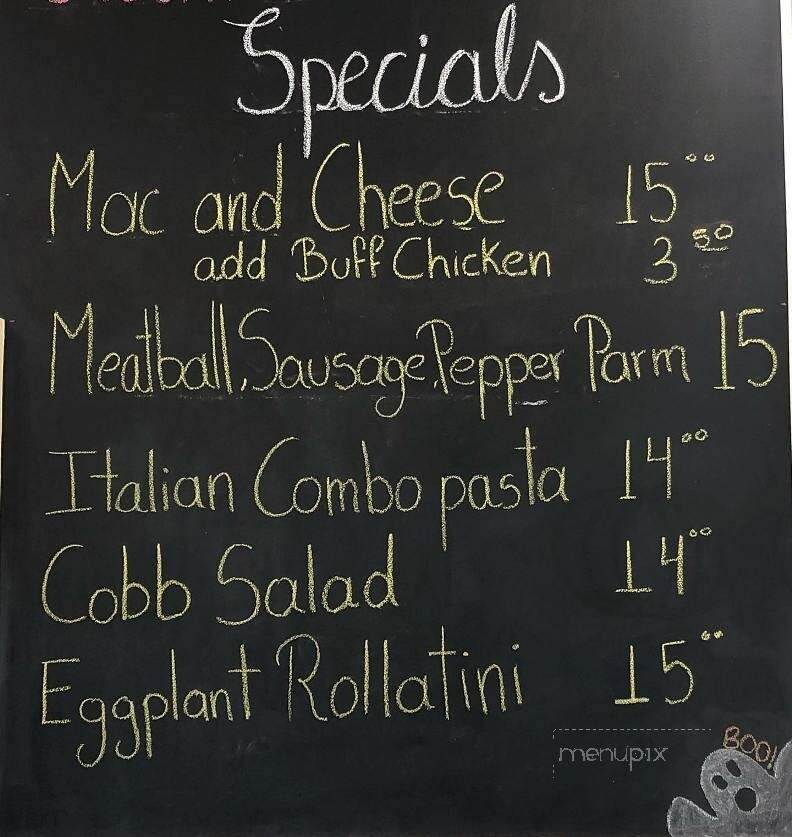 Specials
Mac and Cheese 15.00
add Buff Chicken 3.50
Meatball, Sausage, Pepper Parm 15
Italian Combo pasta 14.00
Cobb Salad 14.00
Eggplant Rollatini 15.00
BOO!
menupix